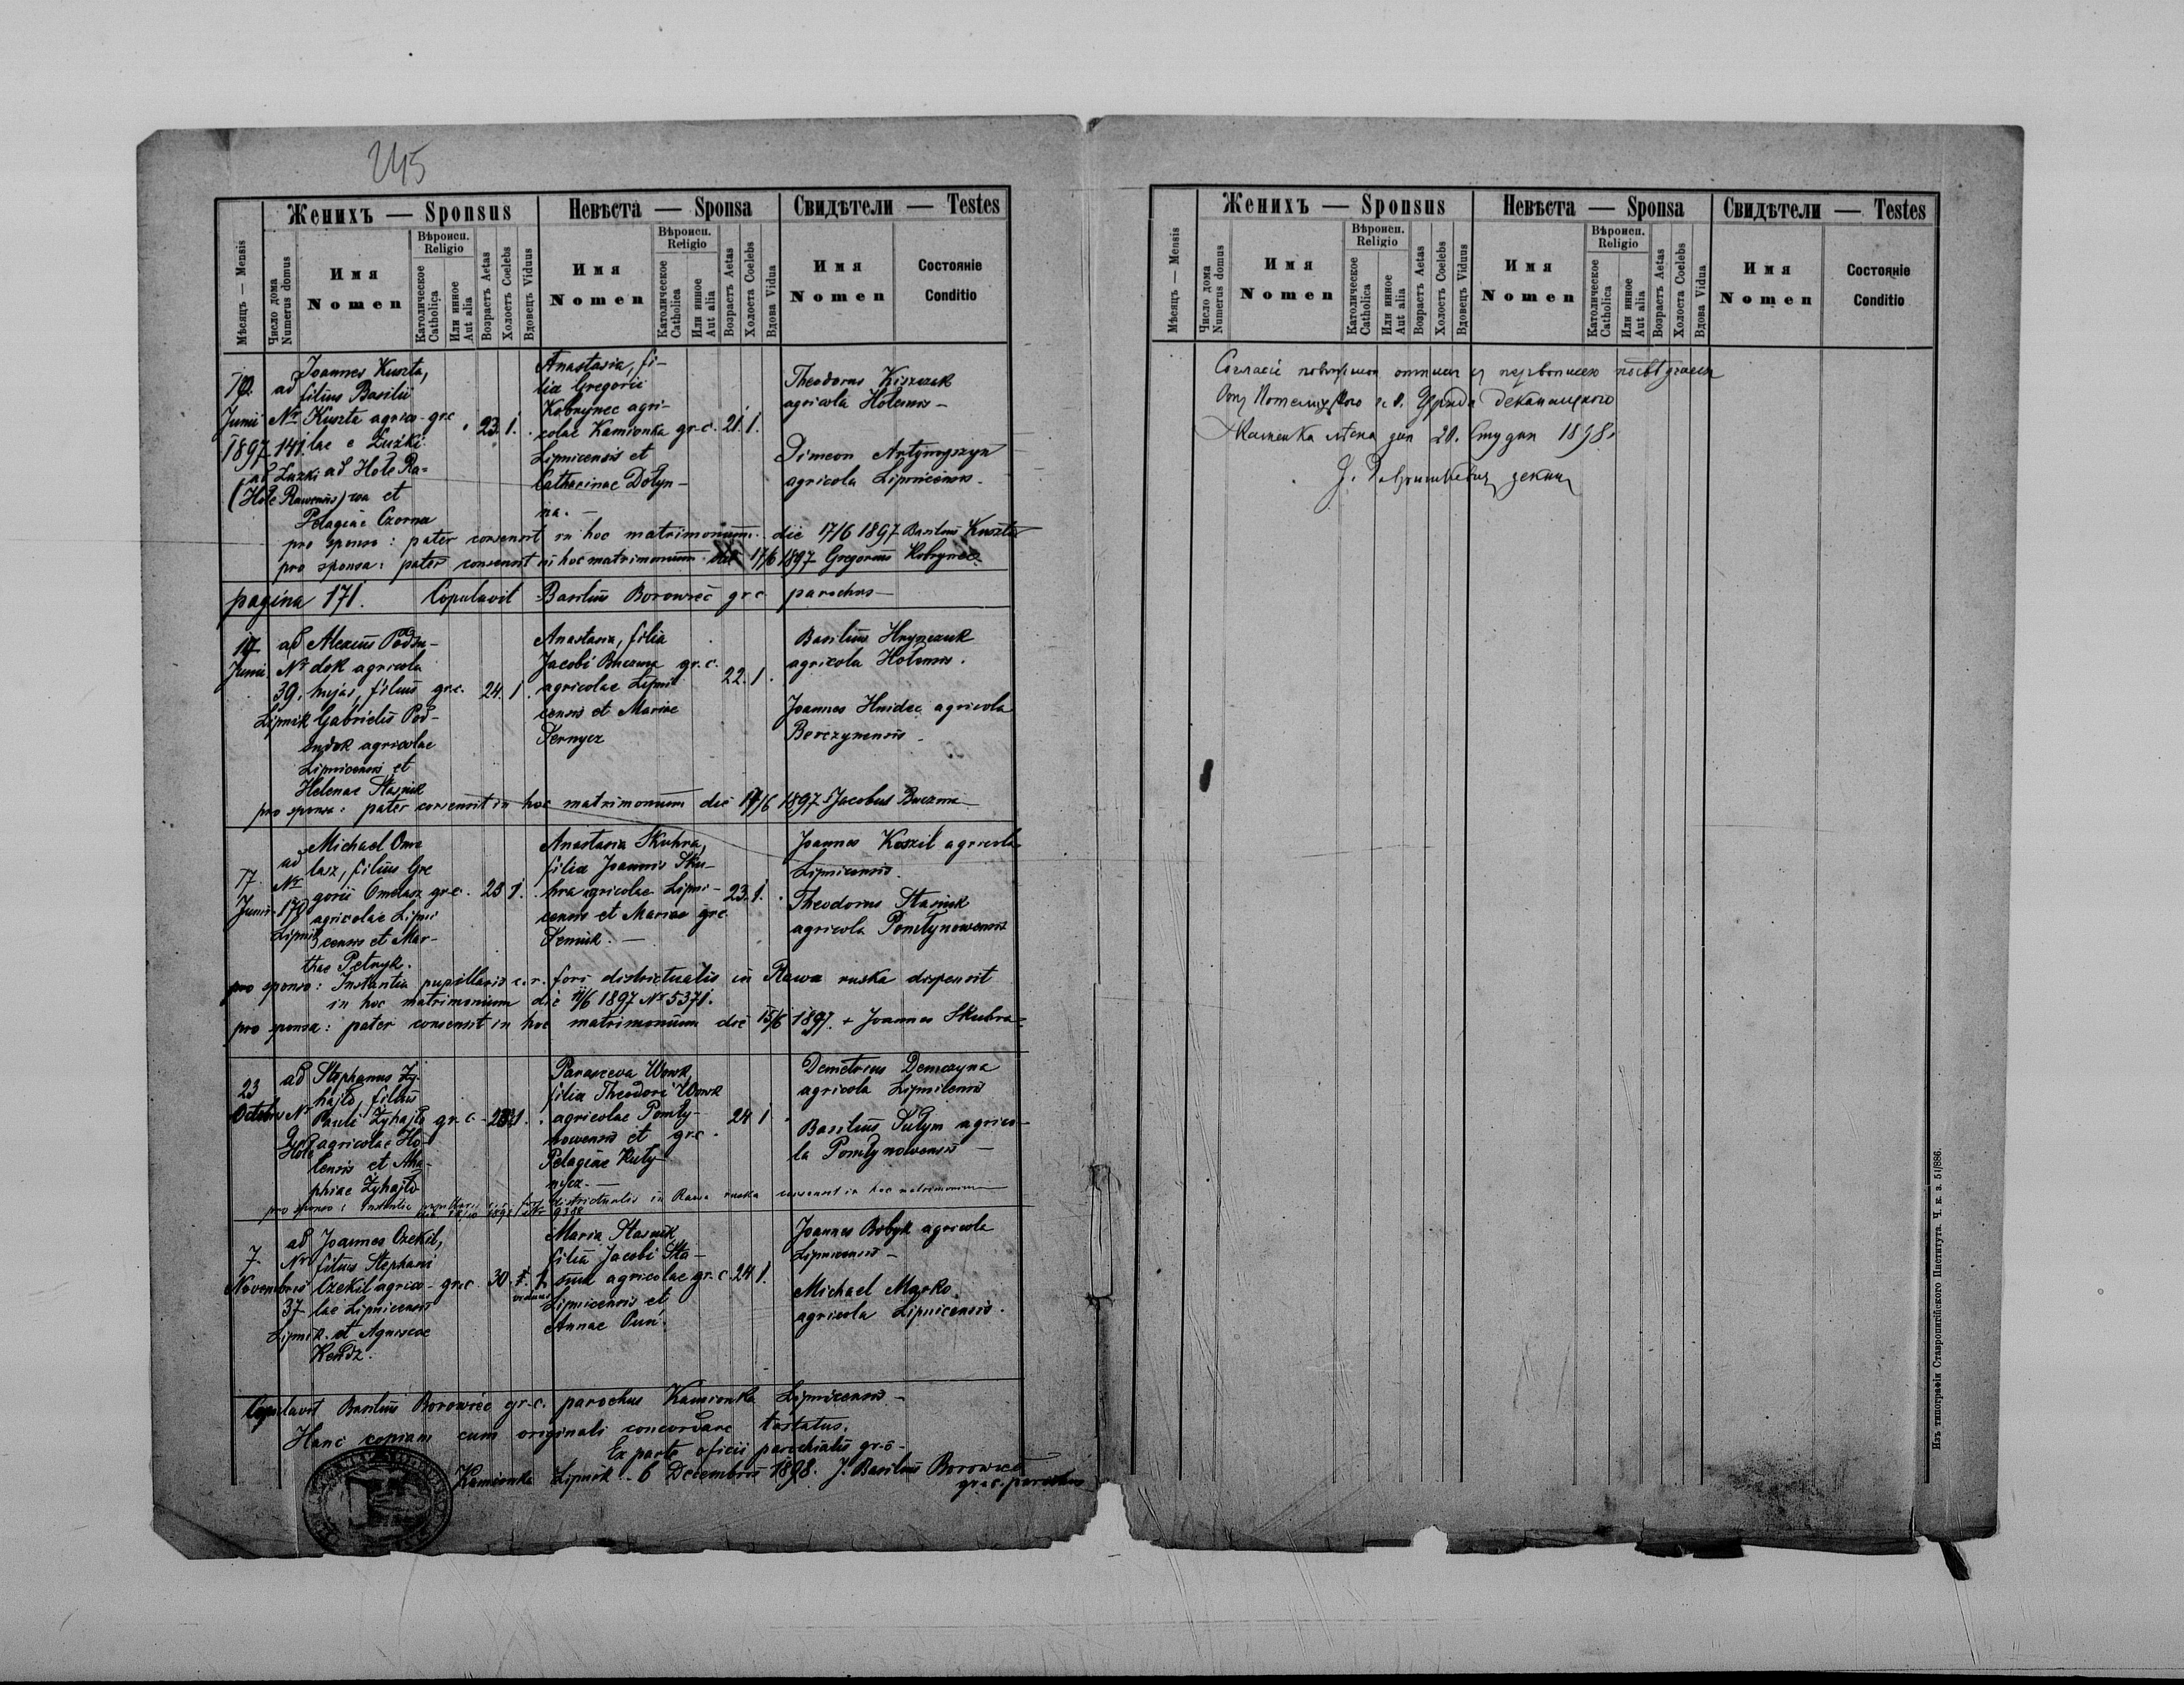 245
Женихъ — Sponsus Невѣста — Sponsa Свидѣтели — Testes
Мѣсяцъ — Mensis
Число дома Numerus domus
Имя Nomen
Вѣроисп. Religio
Католическое Catholica
Или инное Aut alia
Возрастъ Aetas
Холостъ Coelebs
Вдовецъ Viduus
Имя Nomen
Вѣроисп. Religio
Католическое Catholica
Или инное Aut alia
Возрастъ Aetas
Холоста Coelebs
Вдова Vidua
Имя Nomen
Состояніе Conditio
Junii 1897
ad Nr 141.
ad Luzki
(Hole Rawensis)
Joannes Kuszta,
filius Basilii
Kuszta agrico- gr.c. 23. 1.
lae e Luzki
ad Hole Ra-
wa et
Pelagiae Czorna
Anastasia, fi-
lia Gregorii
Kobrynec agri-
colae Kamionka gr.c. 21. 1.
Lipnicensis et
Catharinae Dolyn-
na. —
Theodorus Kiszczak
agricola Holensis —
Simeon
agricola Lipnicensis.
pro sponso: pater consensit in hoc matrimonium die 17/6 1897 Basilius Kuszta
pro sponsa: pater consensit in hoc matrimonium die 17/6 1897 Gregorius Kobrynec
pagina 171. Copulavit Basilius Borowiec gr.c. parochus —
17 Junii
ad Nr 39.
Lipnik
Alexius Podsu-
dok agricola
hujas, filius gr.c. 24. 1.
Gabrielis Pod-
sudok agricolae
Lipnicensis et
Helenae Stasiuk
Anastasia, filia
Jacobi Buczma gr.c. 22. 1.
agricolae Lipni-
censis et Mariae
Sernycz
Basilius Hrynczuk
agricola Holensis.
Joannes Hnidec agricola
Borczynensis.
pro sponsa: pater consensit in hoc matrimonium die 17/6 1897 Jacobus Buczma
17 Junii
ad Nr 170
Lipnik
Michael Ome
lasz, filius Gre
gorii Omelasz gr.c. 23 1.
agricolae Lipni
censis et Mar-
thae Petryk.
Anastasia Skuhra,
filia Joannis Sku-
hra agricolae Lipni- 23. 1.
censis et Mariae gr.c.
Semiuk. —
Joannes Koszil agricola
Lipnicensis.
Theodorus Stasiuk
agricola Pomlynowensis
pro sponso: Instantia pupillaris c.r. fori districtualis in Rawa ruska dispensit
in hoc matrimonium die 11/6 1897 Nr 5371.
pro sponsa: pater consensit in hoc matrimonium die 15/6 1897. + Joannes Skuhra
23 Octobris
ad Nr
Hole
Stephanus Zy-
hajlo, filius
Pauli Zyhajlo gr.c.
agricolae Ho-
lensis et Aha-
phiae Zyhajlo
Parasceva Wowk,
filia Theodori Wowk
agricolae Pomly- 24 1
nowensis et gr.c.
Pelagiae Kuty
nycz. —
Demetrius Demczyna
agricola Lipnicensis
Basilius Sulym agrico-
la Pomlynowensis —
pro sponso: Instantia pupillaris c.r. fori districtualis in Rawa ruska consensit in hoc matrimonium
7. Novembris
ad Nr 37
Lipnik
Joannes Czekil,
filius Stephani
Czekil agrico- gr.c. 30. viduus
lae Lipnicensis
et Agnescae
Kendz.
Maria Stasiuk,
filia Jacobi Sta-
siuk agricolae gr.c. 24 1.
Lipnicensis et
Annae Oun.
Joannes Bobyk agricola
Lipnicensis —
Michael Mazko
agricola Lipnicensis.
Copulavit Basilius Borowiec gr.c. parochus Kamionka Lipnicensis —
Hanc copiam cum originali concordare testatus.
Ex parte oficii parochialis gr.c.
Kamionka Lipnik 6 Decembris 1898. J. Basilius Borowiec
gr.c. parochus
Женихъ — Sponsus Невѣста — Sponsa Свидѣтели — Testes
Мѣсяцъ — Mensis
Число дома Numerus domus
Имя Nomen
Вѣроисп. Religio
Католическое Catholica
Или инное Aut alia
Возрастъ Aetas
Холостъ Coelebs
Вдовецъ Viduus
Имя Nomen
Вѣроисп. Religio
Католическое Catholica
Или инное Aut alia
Возрастъ Aetas
Холоста Coelebs
Вдова Vidua
Имя Nomen
Состояніе Conditio
Деканального
Каменка дня 20. Студня 1898.
декан
Изъ типографіи Ставропигійского Института. Ч. к. з. 551/886.